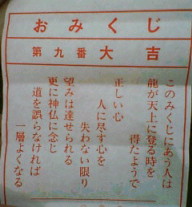 おみくじ
第九番 大吉
このみくじにあう人は
龍が天上に登る時を
得たようで
正しい心
人に尽す心を
失わない限り
望みは達せられる
更に神仏に念じ
道を誤らなければ
一層よくなる